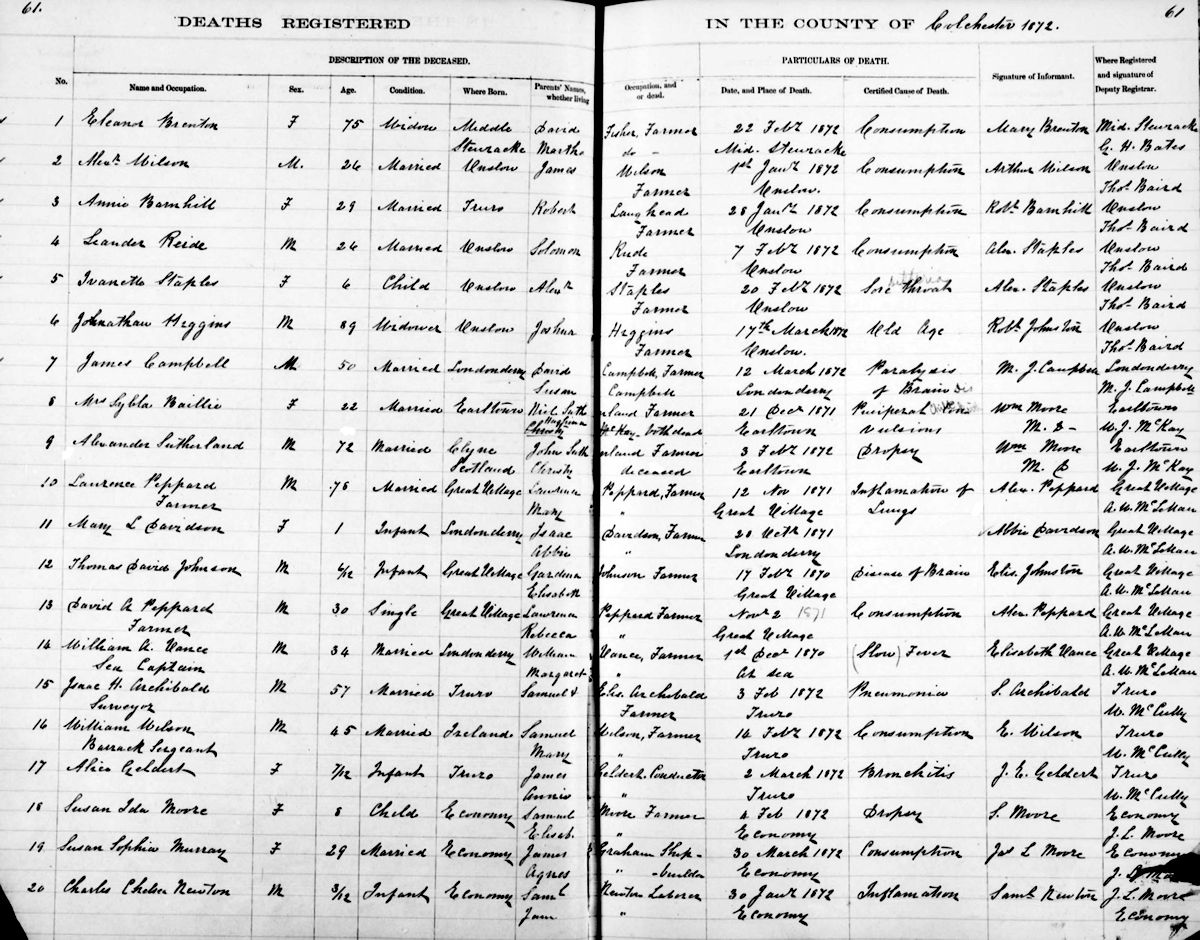 61. 61
DEATHS REGISTERED IN THE COUNTY OF Colchester 1872.
DESCRIPTION OF THE DECEASED. PARTICULARS OF DEATH. Where Registered and signature of Deputy Registrar.
No. Name and Occupation. Sex. Age. Condition. Where Born. Parents' Names, whether living Occupation, and or dead. Date, and Place of Death. Certified Cause of Death. Signature of Informant.
1 Eleanor Brenton F 75 Widow Middle David Fisher, Farmer 22 Feby 1872 Consumption Mary Brenton Mid. Stewracke
Stewracke Martha do - Mid. Stewracke G. H. Bates
2 Alexr Wilson M. 26 Married Onslow James Wilson 1st Jany 1872 Consumption Arthur Wilson Onslow
Farmer Onslow. Thos Baird
3 Annie Barnhill F 29 Married Truro Robert Laughead 28 Jany 1872 Consumption Robt Barnhill Onslow
Farmer Onslow Thos Baird
4 Leander Reide M 26 Married Onslow Solomon Reide 7 Feby 1872 Consumption Alex. Staples Onslow
Farmer Onslow Thos Baird
5 Ivanetta Staples F 6 Child Onslow Alexr Staples 20 Feby 1872 Sore Throat Alex. Staples Onslow
Farmer Onslow Thos Baird
6 Johnathan Higgins M 89 Widower Onslow Joshua Higgins 17th March 1872 Old Age Robt Johnston Onslow
Farmer Onslow. Thos Baird
7 James Campbell M 50 Married Londonderry David Campbell, Farmer 12 March 1872 Paralysis M. J. Campbell Londonderry
Susan Campbell Londonderry of Brain M. J. Campbell
8 Mrs Sybla Baillie F 22 Married Earltown Nicl Suth erland Farmer 21 Decr 1871 Puirperal Con Wm Moore Earltown
Christy McKay - both dead Earltown vulsions M. D- W. J. McKay
9 Alexander Sutherland M 72 Married Clyne John Suth erland Farmer 3 Feby 1872 Dropsy Wm Moore Earltown
Scotland Christy deceased Earltown M. D W. J. McKay
10 Laurence Peppard M 78 Married Great Village Lawrence Peppard, Farmer 12 Nov 1871 Inflamation of Alex. Peppard Great Village
Farmer Mary " Great Village Lungs A. W. McLellan
11 Mary L Davidson F 1 Infant Londonderry Isaac Davidson, Farmer 20 Octr 1871 Abbie Davidson Great Village
Abbie " Londonderry A. W. McLellan
12 Thomas David Johnson M 4/12 Infant Great Village Gardena Johnson Farmer 17 Feby 1870 Disease of Brain Elis. Johnston Great Village
Elisabeth Great Village A. W. McLellan
13 David A Peppard M 30 Single Great Village Lawrence Peppard Farmer Novr 2 1871 Consumption Alex. Peppard Great Village
Farmer Rebecca " Great Village A. W. McLellan
14 William A. Vance M 34 Married Londonderry William Vance, Farmer 1st Decr 1870 (Slow) Fever Elisabeth Vance Great Village
Sea Captain Margaret " At sea A. W. McLellan
15 Isaac H. Archibald M 57 Married Truro Samuel & Elis. Archibald 3 Feb 1872 Pneumonia S. Archibald Truro
Surveyor Farmer Truro W. McCully
16 William Wilson M 45 Married Ireland Samuel Wilson, Farmer 14 Feby 1872 Consumption E. Wilson Truro
Barrack Sergeant Mary " Truro W. McCully
17 Alice Geldert F 7/12 Infant Truro James Geldert, Conductor 2 March 1872 Bronchitis J. E. Geldert Truro
Annie " Truro W. McCully
18 Susan Ida Moore F 8 Child Economy Samuel Moore Farmer 4 Feb 1872 Dropsy S. Moore Economy
Elisab. " Economy J. L. Moore
19 Susan Sophia Murray F 29 Married Economy James Graham Ship- 30 March 1872 Consumption Jas L Moore Economy
Agnes " -builder Economy
20 Charles Chelsea Newton M 3/12 Infant Economy Saml Newton Laborer 30 Jany 1872 Inflamation Saml Newton J. L. Moore
Jane " Economy Economy